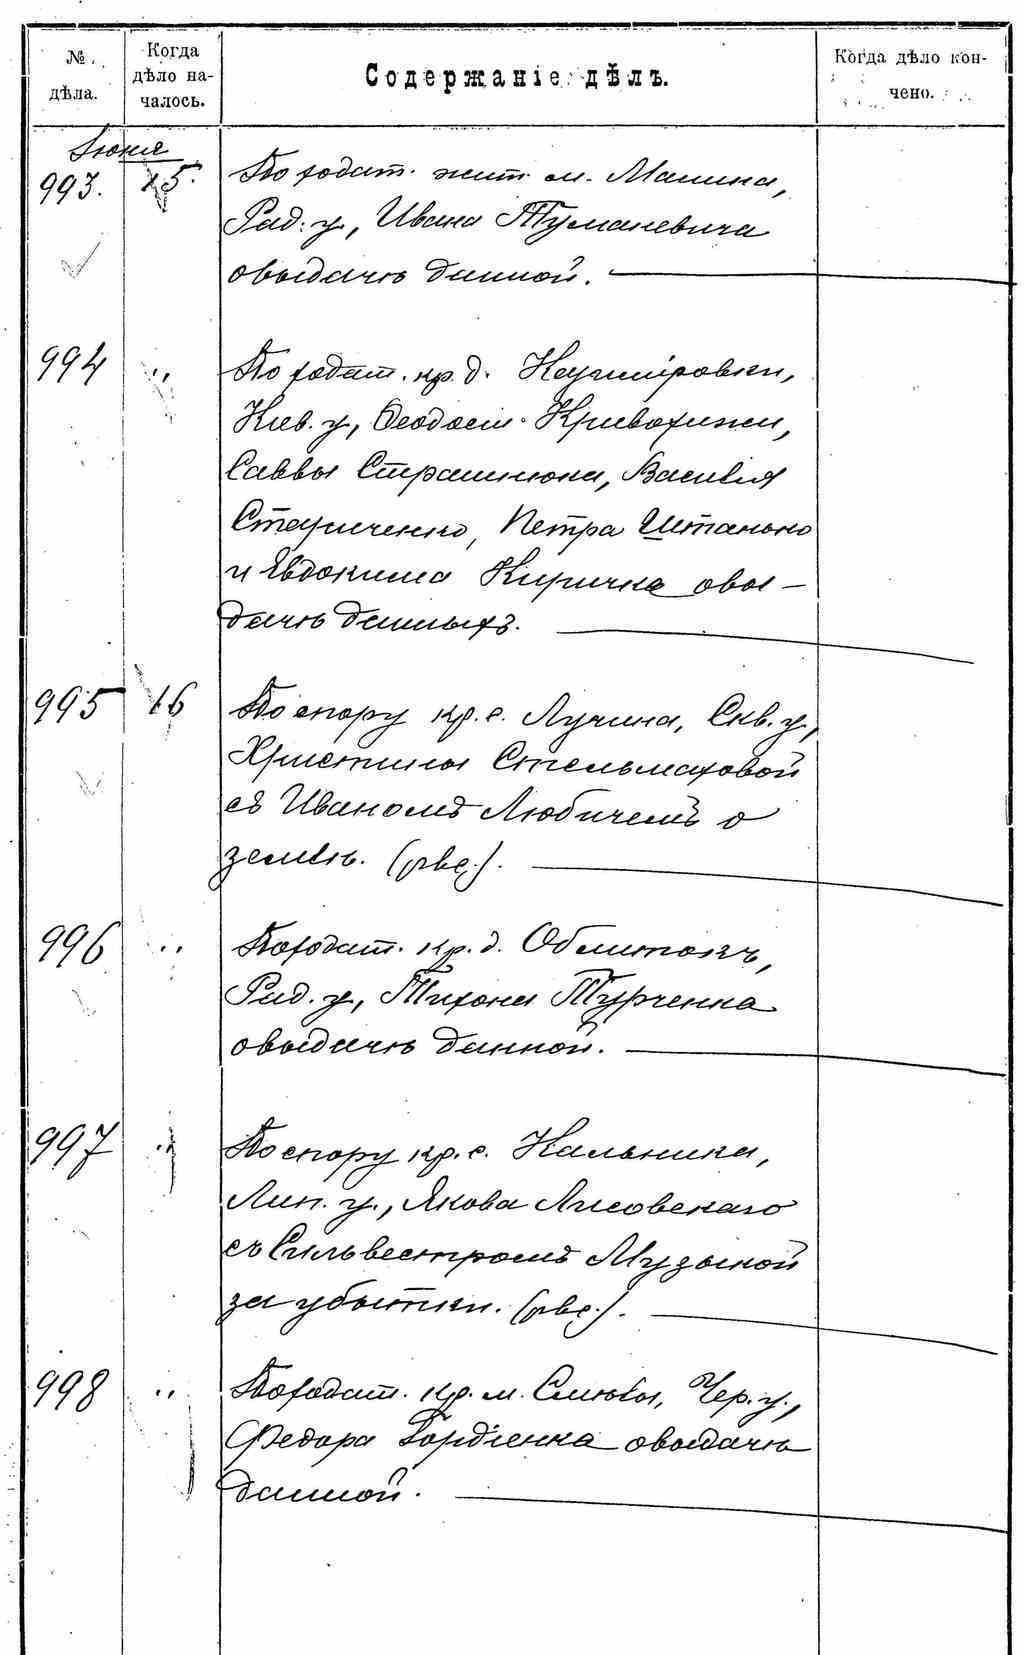 № дѣла.
Когда дѣло на-
чалось.
Содержаніе дѣлъ.
Когда дѣло кон-
чено.
Іюня
993. 15. По ходат. жит. м. Малина,
Рад. у., Ивана Тумановича
о выдачѣ данной.
994 " По ходат. кр. д.
Кіев. у., Феодосія
Саввы Страшнюка, Василія
Петра Штанько
и Евдокима Киричка о вы-
дачѣ данныхъ.
995 16 По спору кр. с. Лучина, Скв. у.,
Христины Стельмаховой
съ Иваномъ Любичемъ о
землѣ.
996 " По ходат. кр. д. Облитокъ,
Рад. у., Тихона Турченка
о выдачѣ данной.
997 " По спору кр. с. Кальника,
Лип. у., Якова Лисовскаго
съ Сильвестромъ Музыкой
за убытки.
998 " По ходат. кр. м. Смѣлы, Чер. у.,
Федора Гордіенка о выдачѣ
данной.